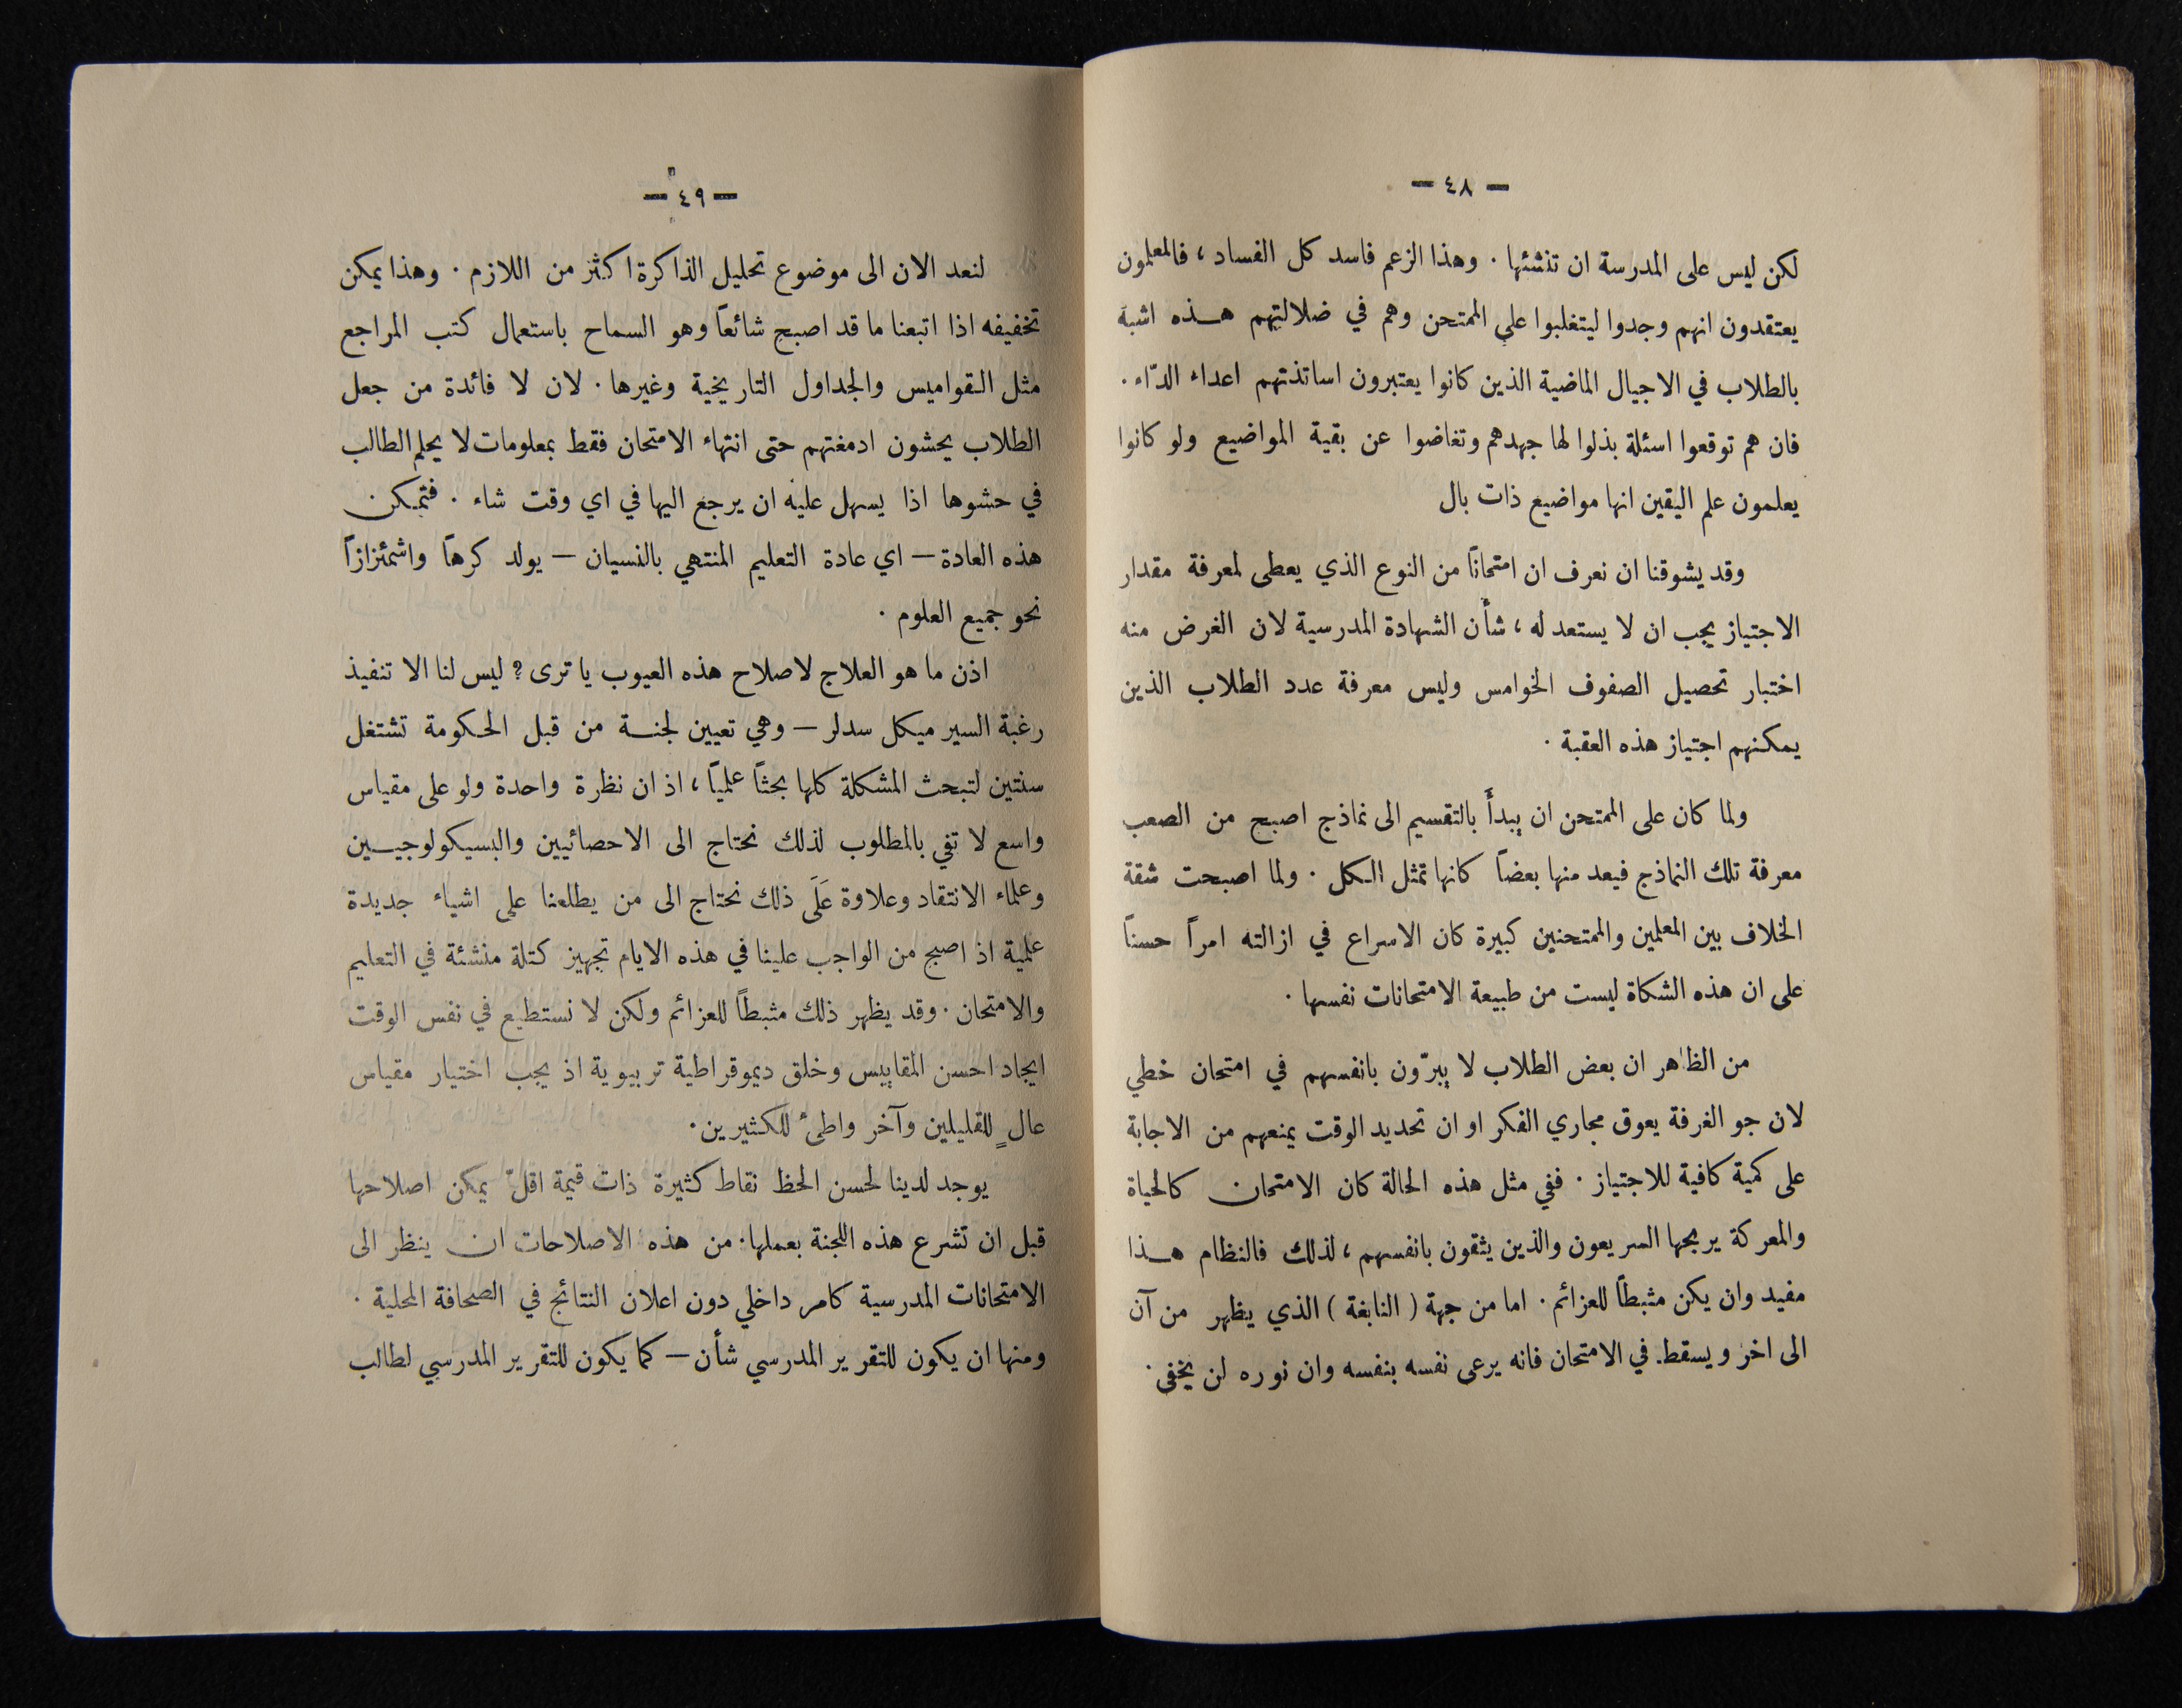 — ٤٨ —
لكن ليس على المدرسة ان تنشئها . وهذا الزعم فاسد كل الفساد ، فالمعلمون
يعتقدون انهم وجدوا ليتغلبوا على الممتحن وهم في ضلالتهم هـذه اشبه
بالطلاب في الاجيال الماضية الذين كانوا يعتبرون اساتذتهم اعداء الدّاء .
فان هم توقعوا اسئلة بذلوا لها جهدهم وتغاضوا عن بقية المواضيع ولو كانوا
يعلمون علم اليقين انها مواضيع ذات بال
وقد يشوقنا ان نعرف ان امتحانًا من النوع الذي يعطى لمعرفة مقدار
الاجتياز يجب ان لا يستعد له ، شأن الشهادة المدرسية لان الغرض منه
اختبار تحصيل الصفوف الخوامس وليس معرفة عدد الطلاب الذين
يمكنهم اجتياز هذه العقبة .
ولما كان على الممتحن ان يبدأ بالتقسيم الى نماذج اصبح من الصعب
معرفة تلك النماذج فيعد منها بعضاً كانها تمثل الكل . ولما اصبحت شقة
الخلاف بين المعلمين والممتحنين كبيرة كان الاسراع في ازالته امراً حسناً
على ان هذه الشكاة ليست من طبيعة الامتحانات نفسها .
من الظاهر ان بعض الطلاب لا يبرّون بانفسهم في امتحان خطي
لان جو الغرفة يعوق مجاري الفكر او ان تحديد الوقت يمنعهم من الاجابة
على كمية كافية للاجتياز . ففي مثل هذه الحالة كان الامتحان كالحياة
والمعركة يربحها السريعون والذين يثقون بانفسهم ، لذلك فالنظام هـذا
مفيد وان يكن مثبطاً للعزائم . اما من جهة ( النابغة ) الذي يظهر من آن
الى اخر ويسقط في الامتحان فانه يرعى نفسه بنفسه وان نوره لن يخفى .
— ٤٩ —
لنعد الان الى موضوع تحليل الذاكرة اكثر من اللازم . وهذا يمكن
تخفيفه اذا اتبعنا ما قد اصبح شائعاً وهو السماح باستعمال كتب المراجع
مثل القواميس والجداول التاريخية وغيرها . لان لا فائدة من جعل
الطلاب يحشون ادمغتهم حتى انتهاء الامتحان فقط بمعلومات لا يحلم الطالب
في حشوها اذا يسهل عليه ان يرجع اليها في اي وقت شاء . فتمكن
هذه العادة — اي عادة التعليم المنتهي بالنسيان — يولد كرهاً واشمئزازاً
نحو جميع العلوم .
اذن ما هو العلاج لاصلاح هذه العيوب يا ترى ? ليس لنا الا تنفيذ
رغبة السير ميكل سدلر — وهي تعيين لجنـة من قبل الحكومة تشتغل
سنتين لتبحث المشكلة كلها بحثاً علمياً ، اذ ان نظرة واحدة ولو على مقياس
واسع لا تفي بالمطلوب لذلك نحتاج الى الاحصائيين والبسيكولوجيـين
وعلماء الانتقاد وعلاوة عَلَى ذلك نحتاج الى من يطلعنا على اشياء جديدة
علمية اذ اصبح من الواجب علينا في هذه الايام تجهيز كتلة منشئة في التعليم
والامتحان . وقد يظهر ذلك مثبطاً للعزائم ولكن لا نستطيع في نفس الوقت
ايجاد احسن المقاييس وخلق ديموقراطية تربيوية اذ يجب اختيار مقياس
عالٍ للقليلين وآخر واطئ للكثيرين .
يوجد لدينا لحسن الحظ نقاط كثيرة ذات قيمة اقلّ يمكن اصلاحها
قبل ان تشرع هذه اللجنة بعملها . من هذه الاصلاحات ان ينظر الى
الامتحانات المدرسية كامر داخلي دون اعلان النتائج في الصحافة المحلية .
ومنها ان يكون للتقرير المدرسي شأن — كما يكون للتقرير المدرسي لطالب